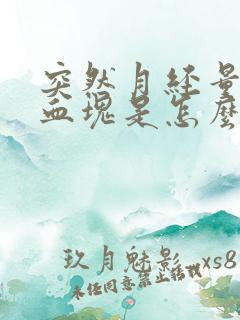 突然月经量
血块是怎么
玖月魅影 xs8
未经同意禁止转载